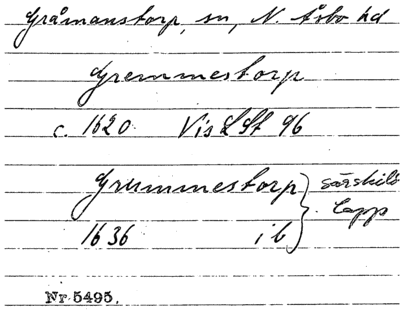 Gråmanstorp, sn, N. Åsbo hd
Gremmestorp
c. 1620 Vis L St 96
Grummestorp } särskild
1636 ib lapp
Nr 5495.